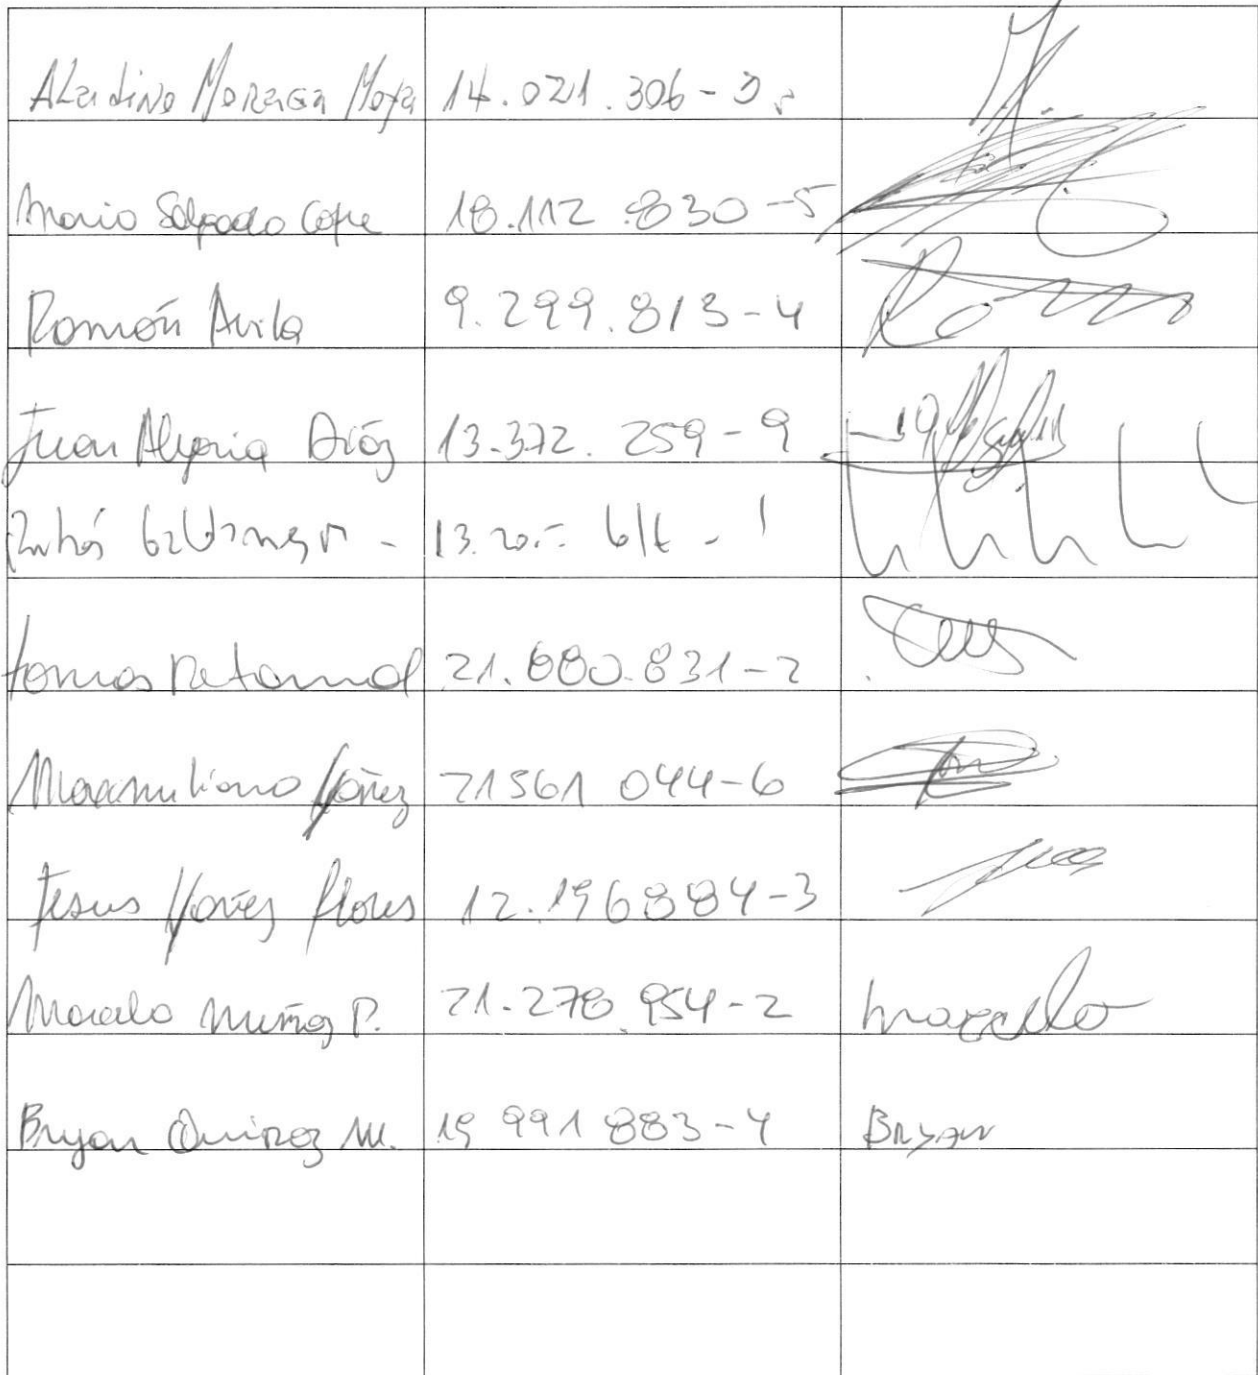 Aladino Moraga Moya 14.021.306-3
Mario Salgado 18.112.830-5
Ramón Avila 9.299.813-4
Juan Alegria Diáz 13.372.259-9
13.
Tomas Retamal 21.680.831-2
Maximiliano Yañez 21561 044-6
Jesus Yañez Flores 12.196884-3
Marcelo Muñoz P. 21.278.954-2 Marcelo
Bryan Quiroz M. 19 991 883-4 Bryan